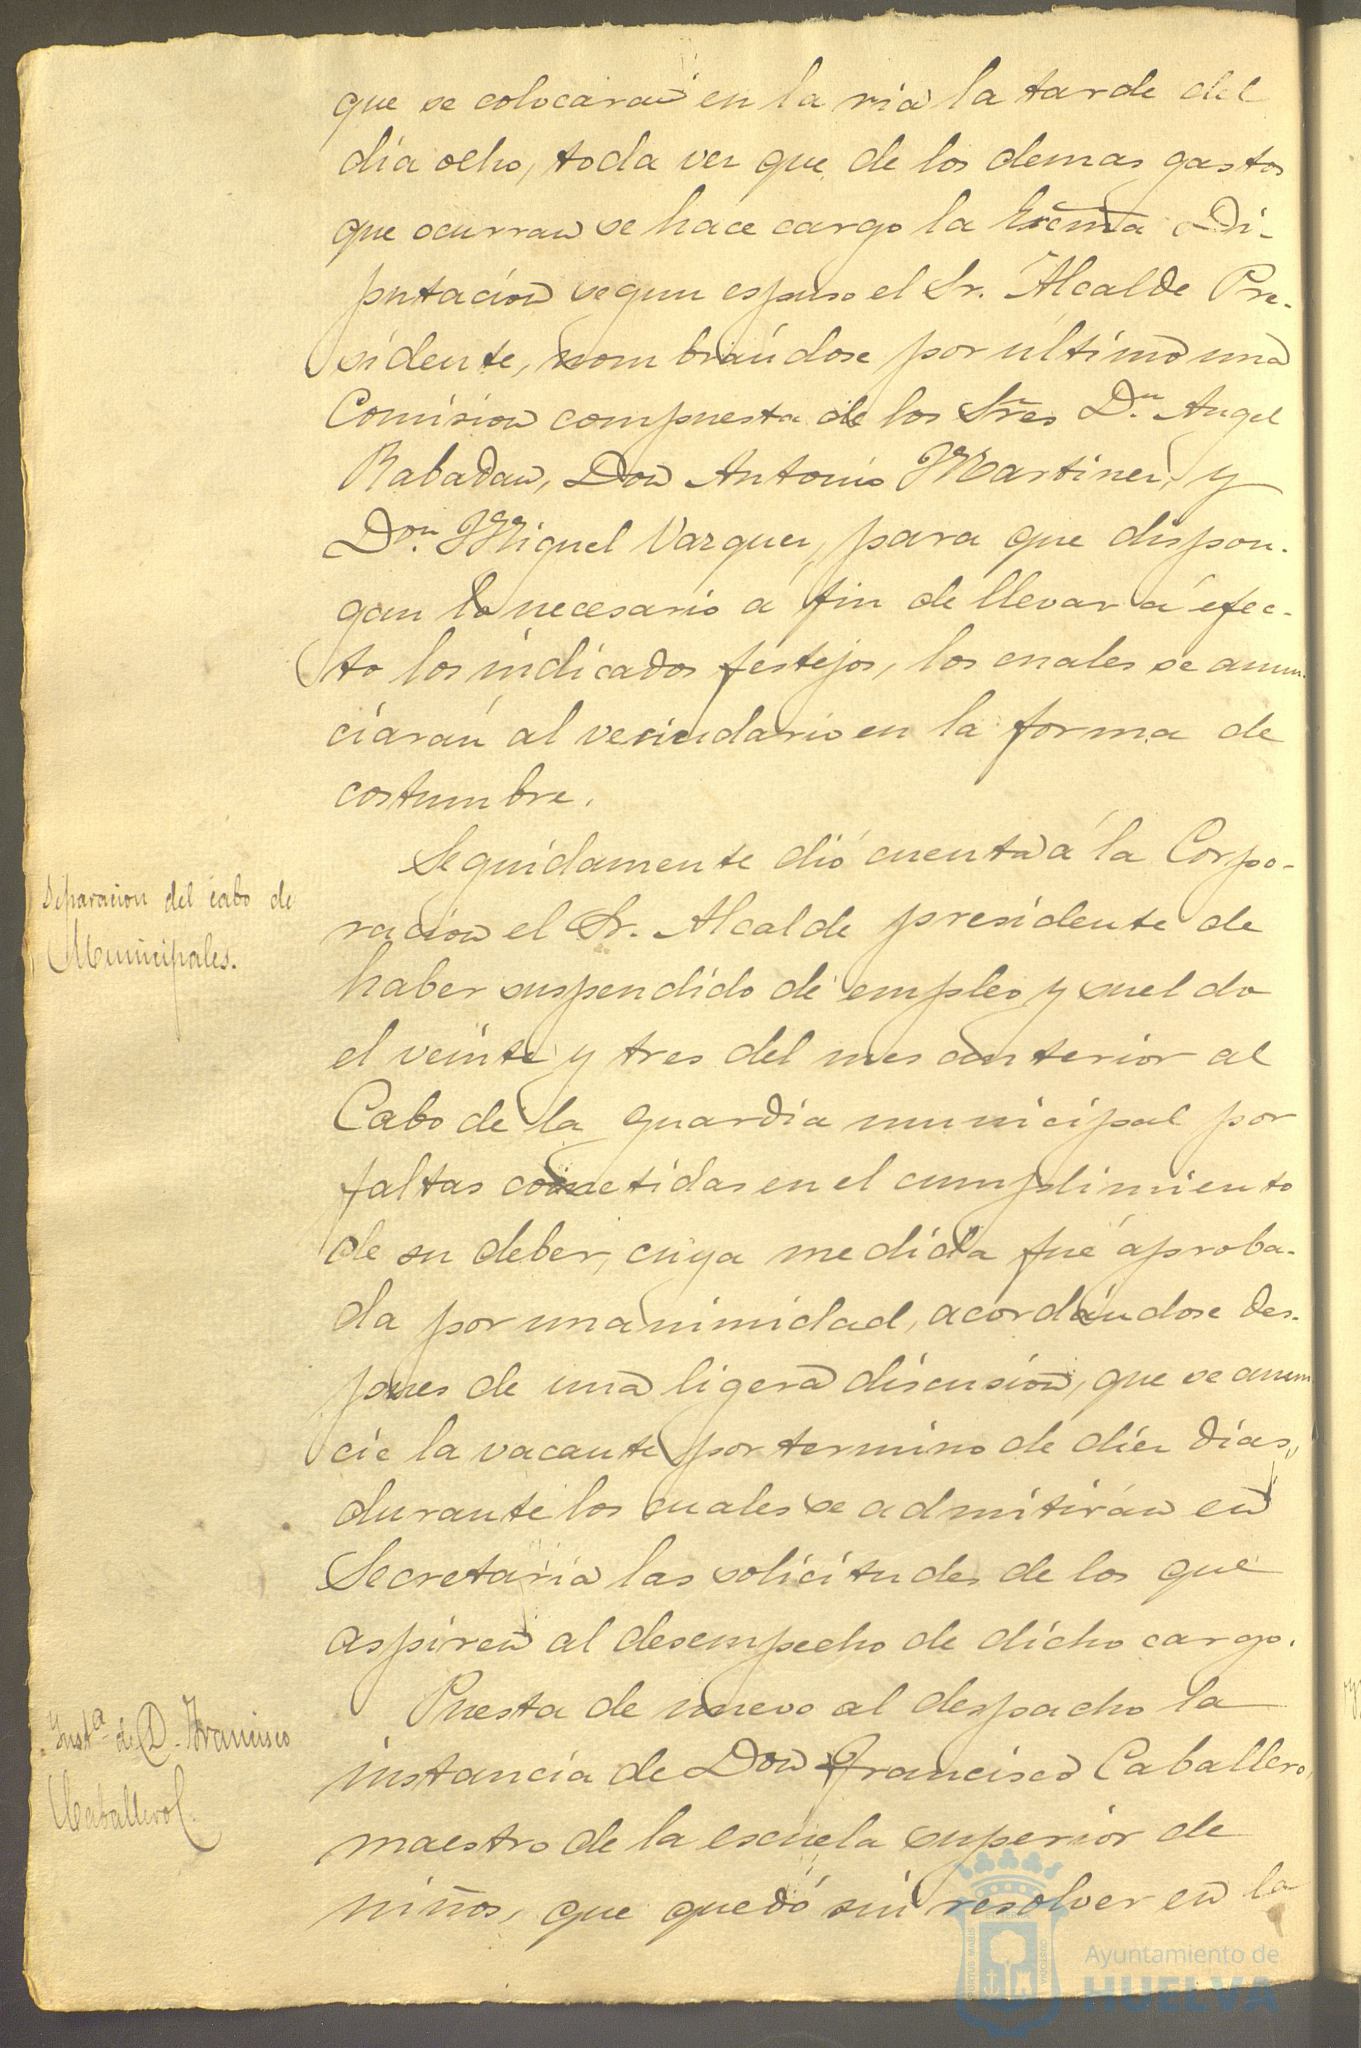 que se colocaran en la ria la tarde del
dia ocho, toda vez que de los demas gastos
que ocurran se hace cargo la Excma Di-
putacion segun espuso el Sr. Alcalde Pre-
sidente, nombrándose por ultimo una
Comision compuesta de los Sres Dn Angel
Rabadan, Don Antonio Martinez, y
Don Miguel Vazquez, para que dispon-
gan lo necesario á fin de llevar á efec-
to los indicados festejos, los cuales se anun-
ciarán al vecindario en la forma de
costumbre.
Separacion del cabo de
Municipales.
Seguidamente dió cuenta á la Corpo-
racion el Sr. Alcalde presidente de
haber suspendido de empleo y sueldo
el veinte y tres del mes anterior al
Cabo de la guardia municipal por
faltas cometidas en el cumplimiento
de su deber, cuya medida fué aproba-
da por unanimidad, acordándose des-
pues de una ligera discusion, que se anun
cie la vacante por termino de diez dias,
durante los cuales se admitirán en
Secretaria las solicitudes de los que
aspiren al desempecho de dicho cargo.
Insta de D. Francisco
Caballero.
Puesta de nuevo al despacho la
instancia de Don Francisco Caballero,
maestro de la escuela superior de
niños, que quedó sin resolver en la
PORTUS MARIS
CUSTODIA
Ayuntamiento de
HUELVA